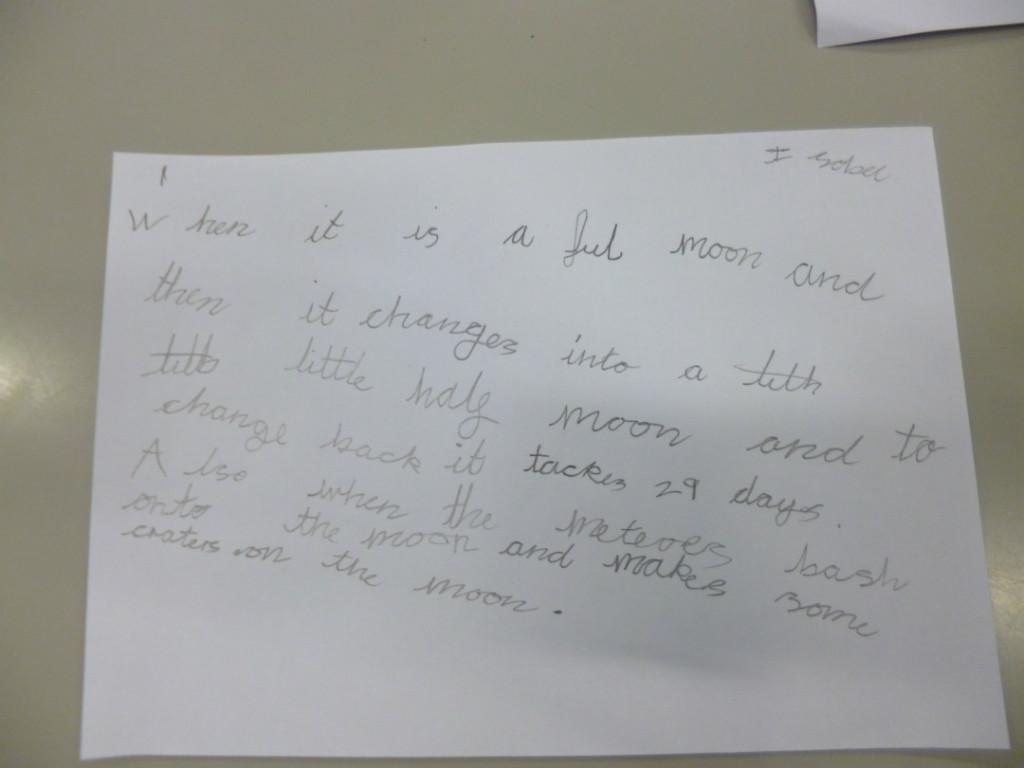 Isobel
1
When it is a ful moon and
then it changes into a
little half moon and to
change back it tackes 29 days.
Also when the meteores bash
onto the moon and makes some
craters on the moon.